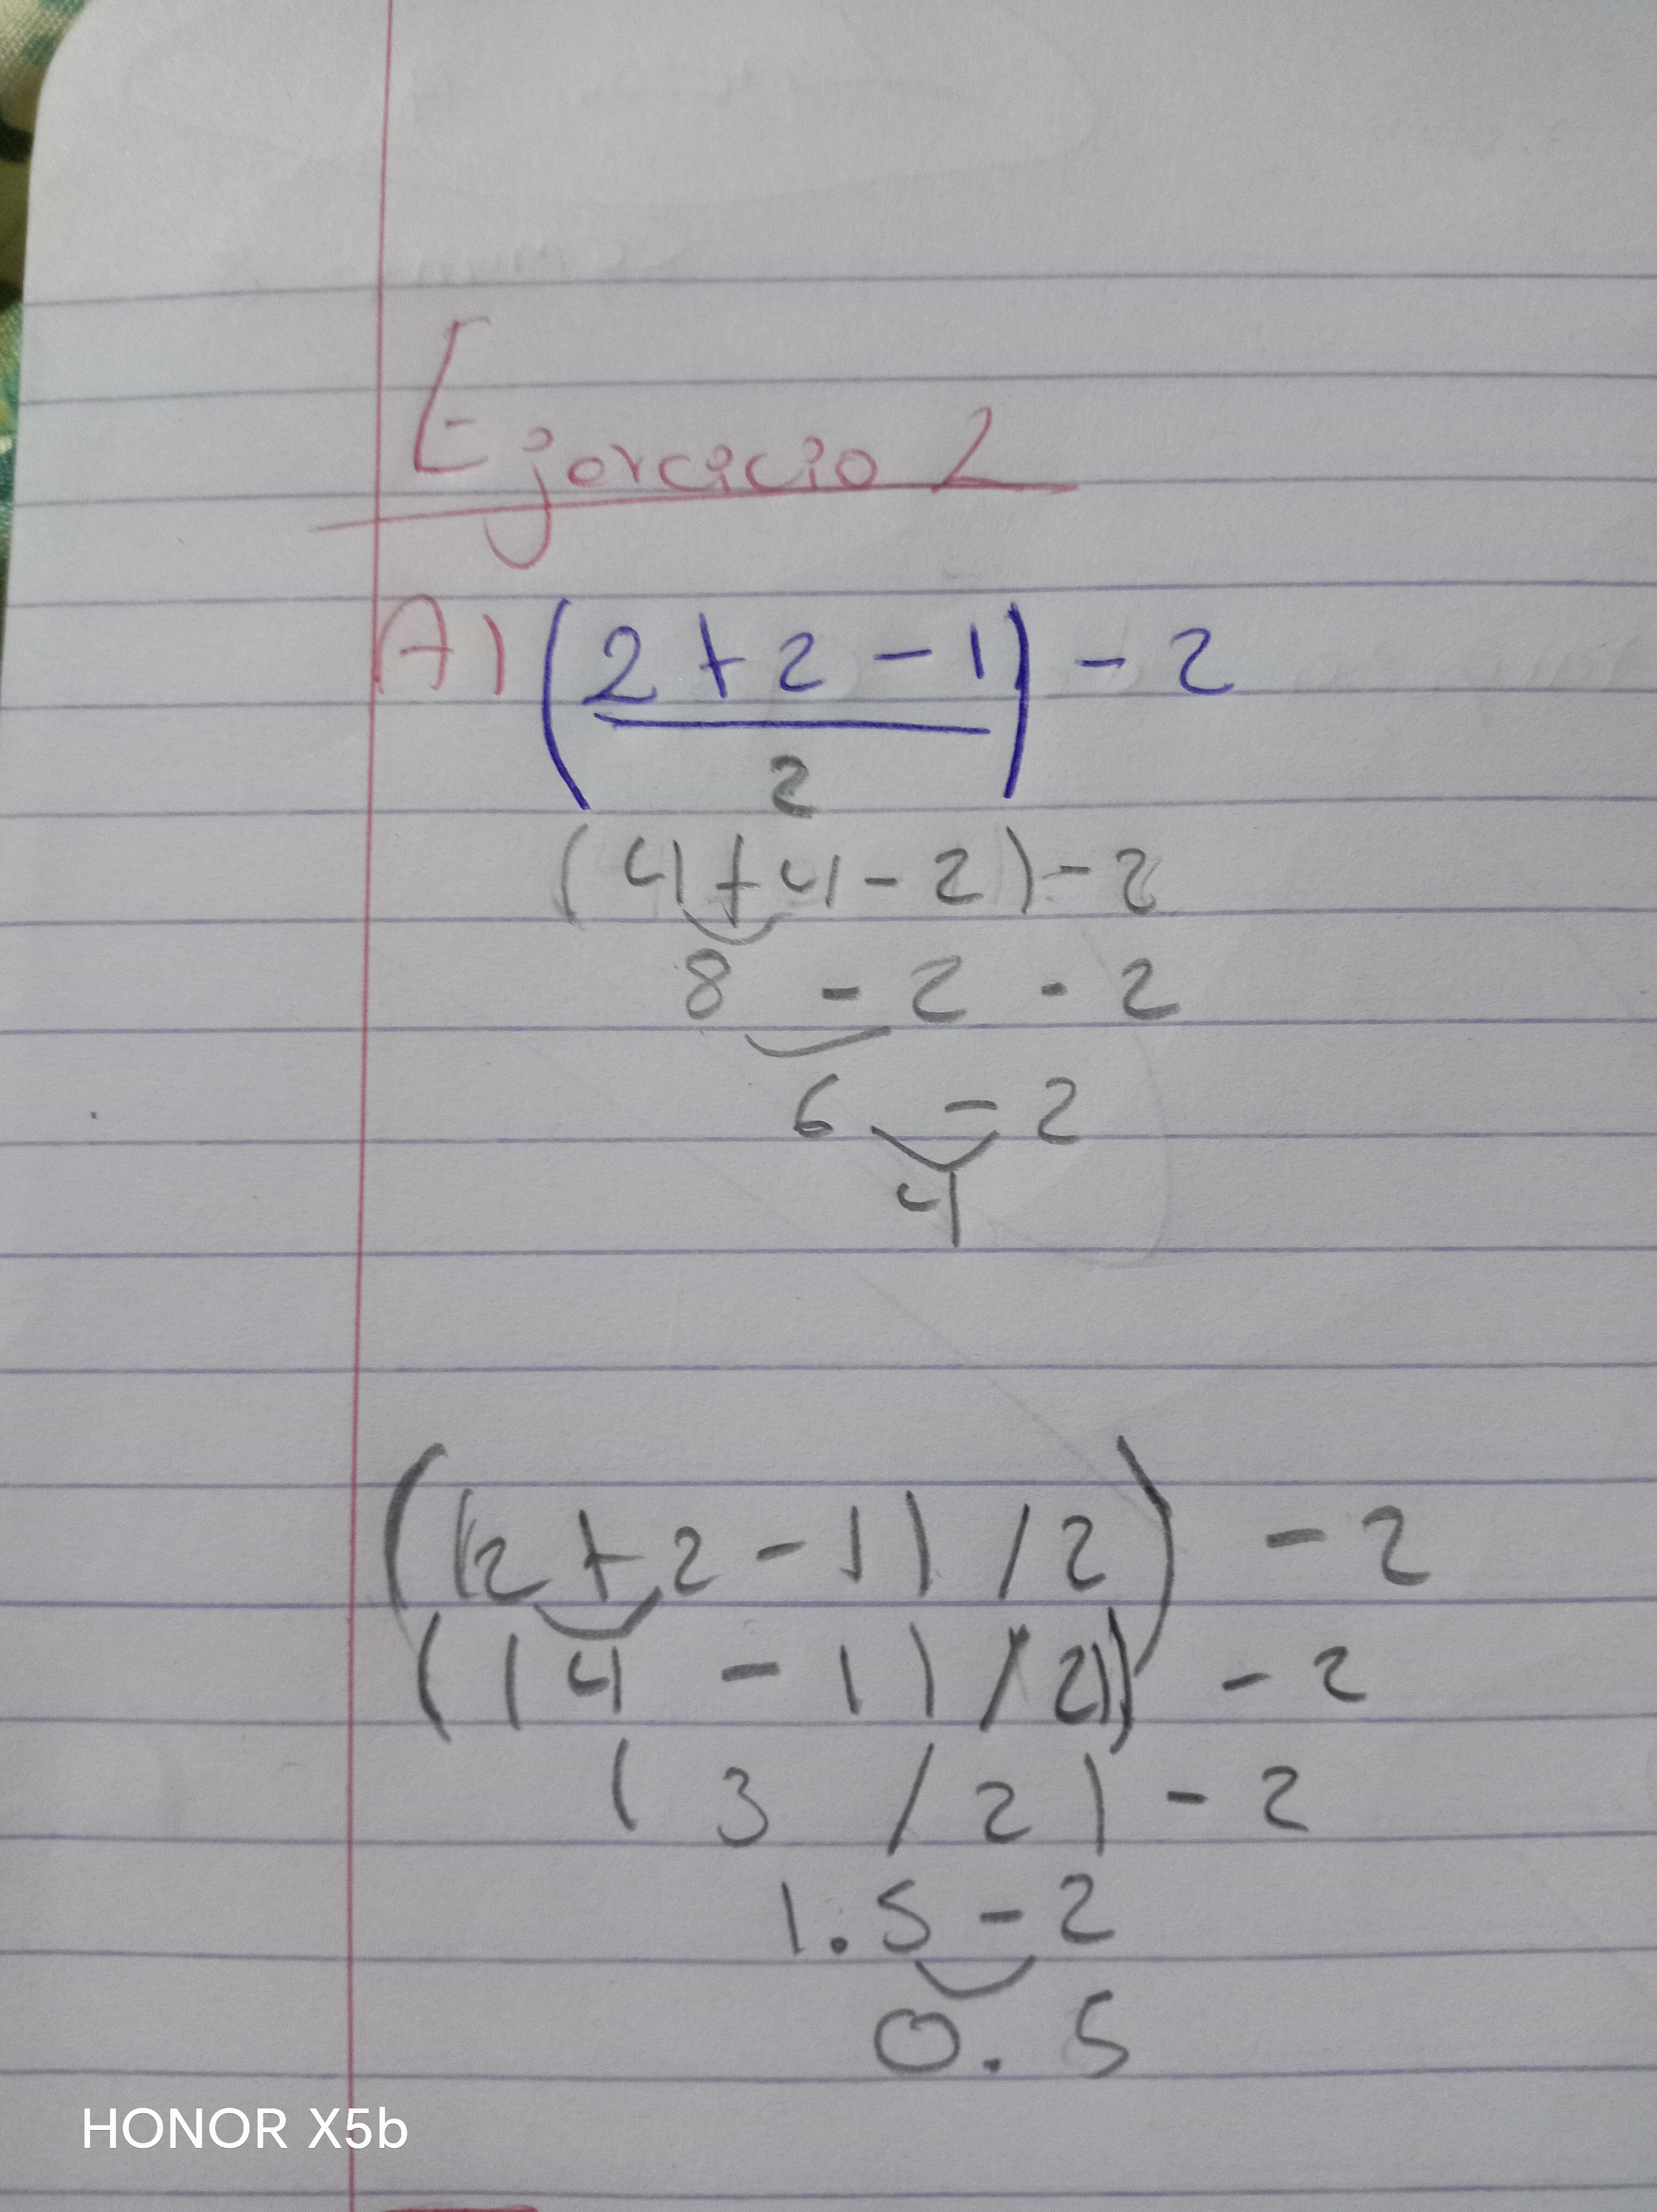 Ejercicio 2
A) (2 + 2 - 1) - 2
2
(4 + 4 - 2) - 2
8 - 2 - 2
6 - 2
4
((2 + 2 - 1) / 2) - 2
((4 - 1) / 2)) - 2
(3 / 2) - 2
1.5 - 2
0.5
HONOR X5b